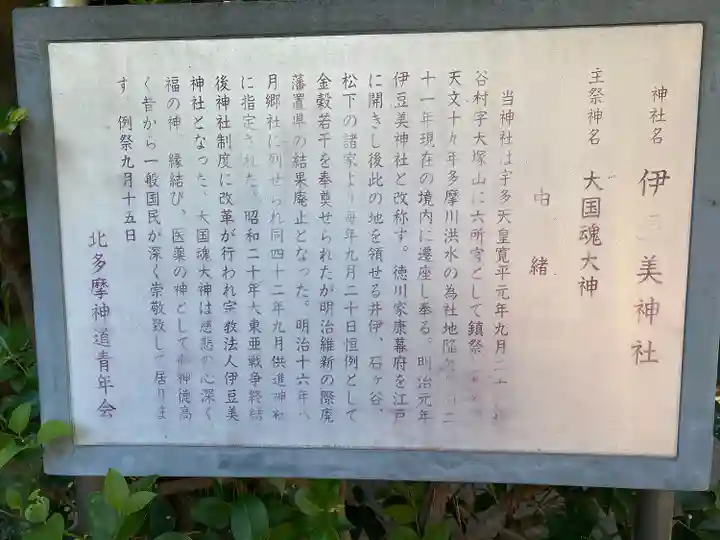 神社名 伊 美神社
主祭神名 大国魂大神
由緒
当神社は宇多天皇寛平元年九月二十
谷村字大塚山に六所宮として鎮祭
天文十九年多摩川洪水の為社地陥 二
十一年現在の境内に遷座し奉る。明治元年
伊豆美神社と改称す。徳川家康幕府を江戸
に開きし後此の地を領せる井伊、石ヶ谷、
松下の諸家より毎年九月二十日恒例として
金穀若干を奉奠せられたが明治維新の際廃
藩置県の結果廃止となった。明治十六年八
月郷社に列せられ同四十二年九月供進神社
に指定された。昭和二十年大東亜戦争終結
後神社制度に改革が行われ宗教法人伊豆美
神社となった。大国魂大神は慈悲の心深く
福の神、縁結び、医薬の神として御神徳高
く昔から一般国民が深く崇敬致して居りま
す 例祭九月十五日
北多摩神道青年会